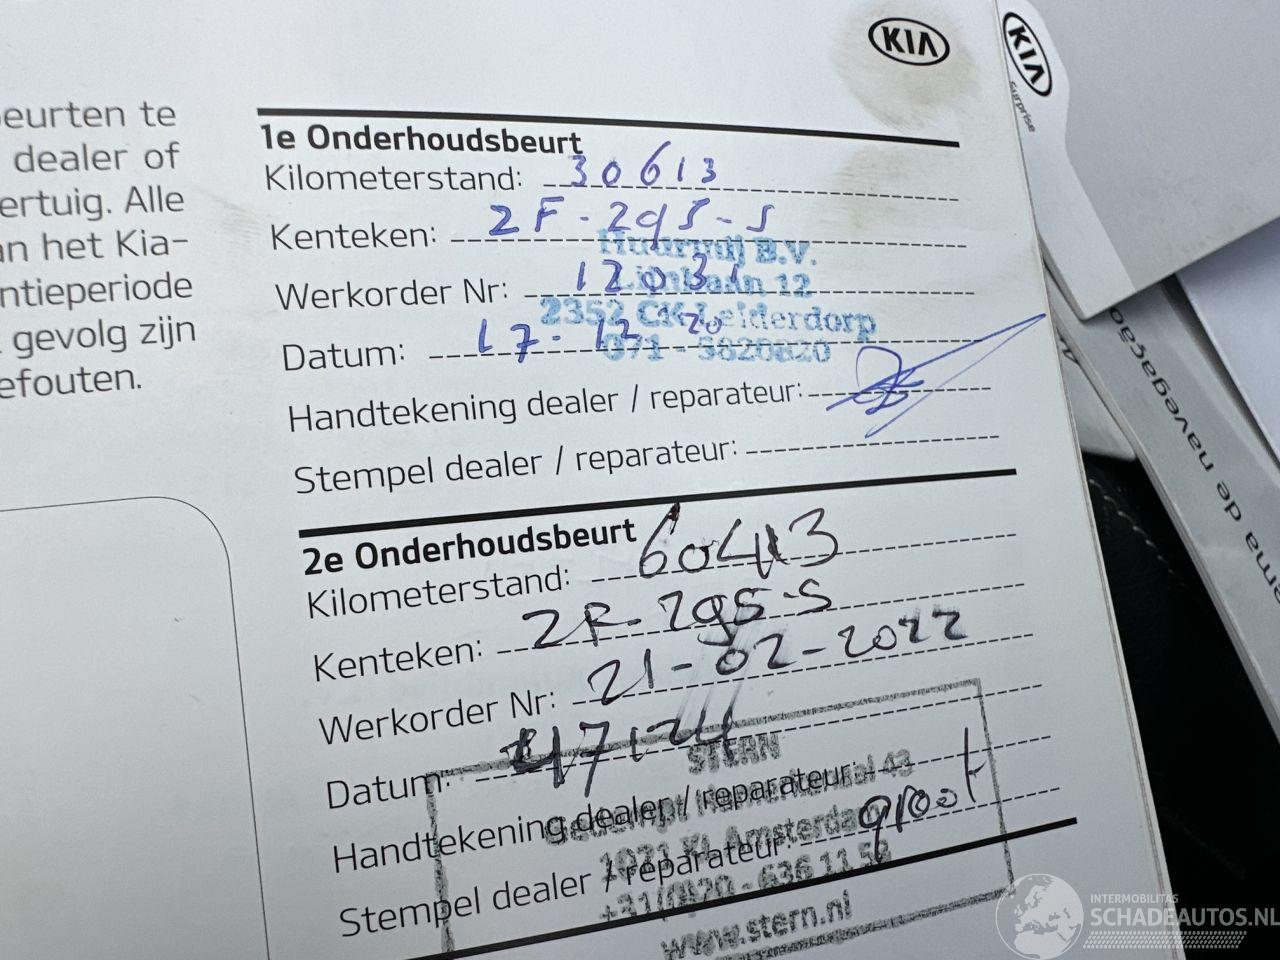 KIA
KIA
surprise
eurten te
dealer of
ertuig. Alle
an het Kia-
ntieperiode
gevolg zijn
efouten.
1e Onderhoudsbeurt
Kilometerstand: 30613
Kenteken: 2F-295-S
Werkorder Nr: 12031
Datum: 17-12-20
Huurwij B.V.
12
2352 CK Leiderdorp
071 - 5820820
Handtekening dealer / reparateur:
Stempel dealer / reparateur:
2e Onderhoudsbeurt
Kilometerstand: 60413
Kenteken: ZF-295-S
Werkorder Nr: 21-02-2022
Datum:
Handtekening dealer / reparateur:
Stempel dealer / reparateur: groot
STERN
43
Amsterdam
+31(0)20 - 636 11 56
www.stern.nl
ema de navegação
INTERMOBILITAS
SCHADEAUTOS.NL